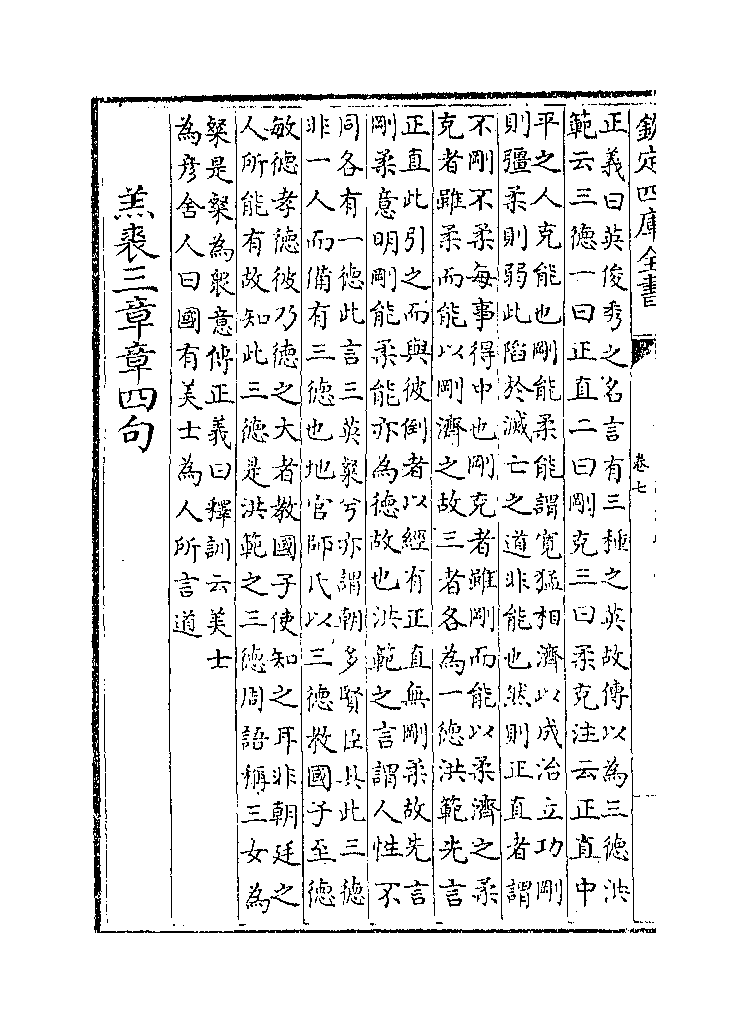 欽定四庫全書
卷七
正義曰英俊秀之名言有三種之英故傳以為三德洪
範云三德一曰正直二曰剛克三曰柔克注云正直中
平之人克能也剛能柔能謂寛猛相濟以成治立功剛
則彊柔則弱此陷於滅亡之道非能也然則正直者謂
不剛不柔每事得中也剛克者雖剛而能以柔濟之柔
克者雖柔而能以剛濟之故三者各為一德洪範先言
正直此引之而與彼倒者以經有正直無剛柔故先言
剛柔意明剛能柔能亦為德故也洪範之言謂人性不
同各有一德此言三英粲兮亦謂朝多賢臣具此三德
非一人而備有三德也地官師氏以三德教國子至德
敏德孝德彼乃德之大者教國子使知之耳非朝廷之
人所能有故知此三德是洪範之三德周語稱三女為
粲是粲為衆意傳正義曰釋訓云美士
為彦舍人曰國有美士為人所言道
羔裘三章章四句